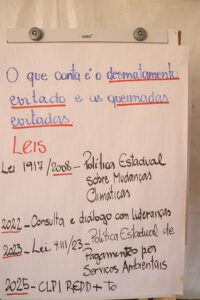 O que conta é o desmatamento
evitado e as queimadas
evitadas.
Leis
Lei 1917/2008 - Política Estadual
sobre Mudanças
Climáticas
2022 - Consulta e diálogo com lideranças
2023 - Lei 4.111/23 - Política Estadual de
Pagamentos por
Serviços Ambientais
2025 - CLPI REDD+ To